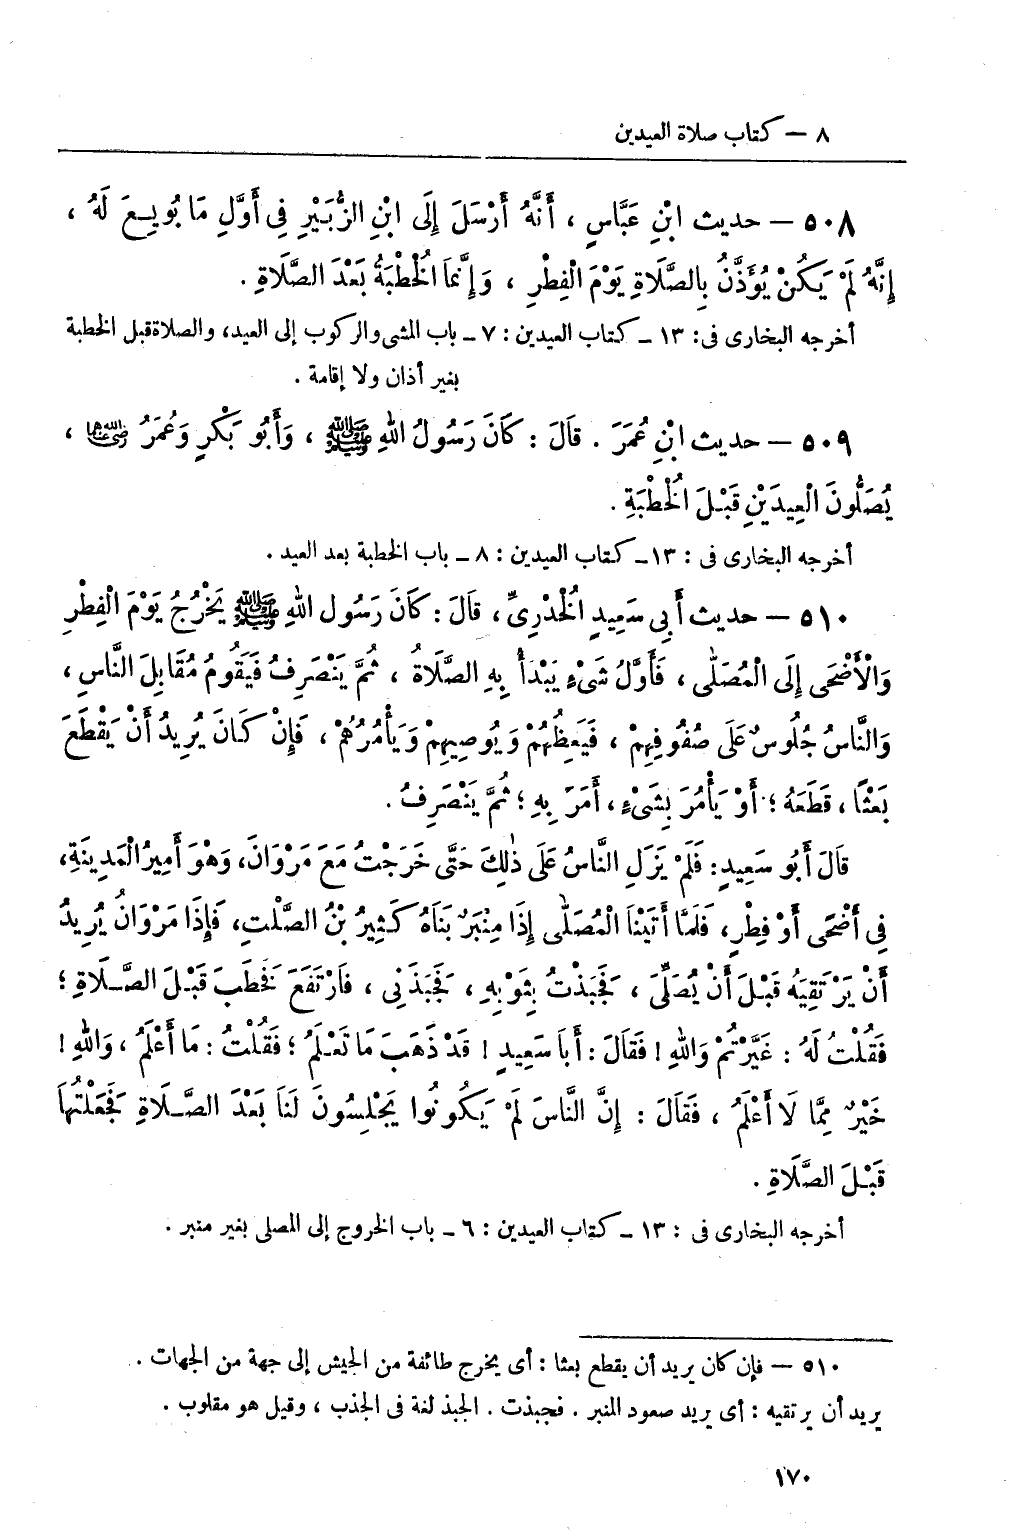 ٨ — كتاب صلاة العيدين
٥٠٨ — حديث ابْنِ عَبَّاسٍ ، أَنَّهُ أَرْسَلَ إِلَى ابْنِ الزُّبَيْرِ فِى أَوَّلِ مَا بُويِعَ لَهُ ،
إِنَّهُ لَمْ يَكُنْ يُؤَذَّنُ بِالصَّلَاةِ يَوْمَ الْفِطْرِ ، وَإِنَّمَا الْخُطْبَةُ بَعْدَ الصَّلَاةِ .
أخرجه البخارى فى : ١٣ ـ كتاب العيدين : ٧ ـ باب المشى والركوب إلى العيد، والصلاة قبل الخطبة
بغير أذان ولا إقامة .
٥٠٩ — حديث ابْنِ عُمَرَ . قَالَ : كَانَ رَسُولُ اللهِ ﷺ ، وَأَبُو بَكْرٍ وَعُمَرُ رضي الله عنهما ،
يُصَلُّونَ الْعِيدَيْنِ قَبْلَ الْخُطْبَةِ .
أخرجه البخارى فى : ١٣ ـ كتاب العيدين : ٨ ـ باب الخطبة بعد العيد .
٥١٠ — حديث أَبِى سَعِيدٍ الْخُدْرِىِّ ، قَالَ : كَانَ رَسُول اللهِ ﷺ يَخْرُجُ يَوْمَ الْفِطْرِ
وَالْأَضْحَى إِلَى الْمُصَلَّى ، فَأَوَّلُ شَىْءٍ يَبْدَأُ بِهِ الصَّلَاةُ ، ثُمَّ يَنْصَرِفُ فَيَقُومُ مُقَابِلَ النَّاسِ ،
وَالنَّاسُ جُلُوسٌ عَلَى صُفُوفِهِمْ ، فَيَعِظُهُمْ وَيُوصِيهِمْ وَيَأْمُرُهُمْ ، فَإِنْ كَانَ يُرِيدُ أَنْ يَقْطَعَ
بَعْثًا ، قَطَعَهُ ؛ أَوْ يَأْمُرَ بِشَىْءٍ ، أَمَرَ بِهِ ؛ ثُمَّ يَنْصَرِفُ .
قَالَ أَبُو سَعِيدٍ : فَلَمْ يَزَلِ النَّاسُ عَلَى ذٰلِكَ حَتَّى خَرَجْتُ مَعَ مَرْوَانَ، وَهْوَ أَمِيرُ الْمَدِينَةِ،
فِى أَضْحًى أَوْ فِطْرٍ ، فَلَمَّا أَتَيْنَا الْمُصَلَّى إِذَا مِنْبَرٌ بَنَاهُ كَثِيرُ بْنُ الصَّلْتِ، فَإِذَا مَرْوَانُ يُرِيدُ
أَنْ يَرْتَقِيَهُ قَبْلَ أَنْ يُصَلِّىَ ، فَجَبَذْتُ بِثَوْبِهِ ، فَجَبَذَنِى ، فَارْتَفَعَ فَخَطَبَ قَبْلَ الصَّلَاةِ ؛
فَقُلْتُ لَهُ : غَيَّرْتُمْ وَاللهِ ! فَقَالَ : أَبَا سَعِيدٍ ! قَدْ ذَهَبَ مَا تَعْلَمُ ؛ فَقُلْتُ : مَا أَعْلَمُ ، وَاللهِ !
خَيْرٌ مِمَّا لَا أَعْلَمُ ، فَقَالَ : إِنَّ النَّاسَ لَمْ يَكُونُوا يَجْلِسُونَ لَنَا بَعْدَ الصَّلَاةِ فَجَعَلْتُهَا
قَبْلَ الصَّلَاةِ .
أخرجه البخارى فى : ١٣ ـ كتاب العيدين : ٦ ـ باب الخروج إلى المصلى بغير منبر .
٥١٠ — فإن كان يريد أن يقطع بعثا : أى يخرج طائفة من الجيش إلى جهة من الجهات .
يريد أن يرتقيه : أى يريد صعود المنبر . فجبذت . الجبذ لغة فى الجذب ، وقيل هو مقلوب .
١٧٠